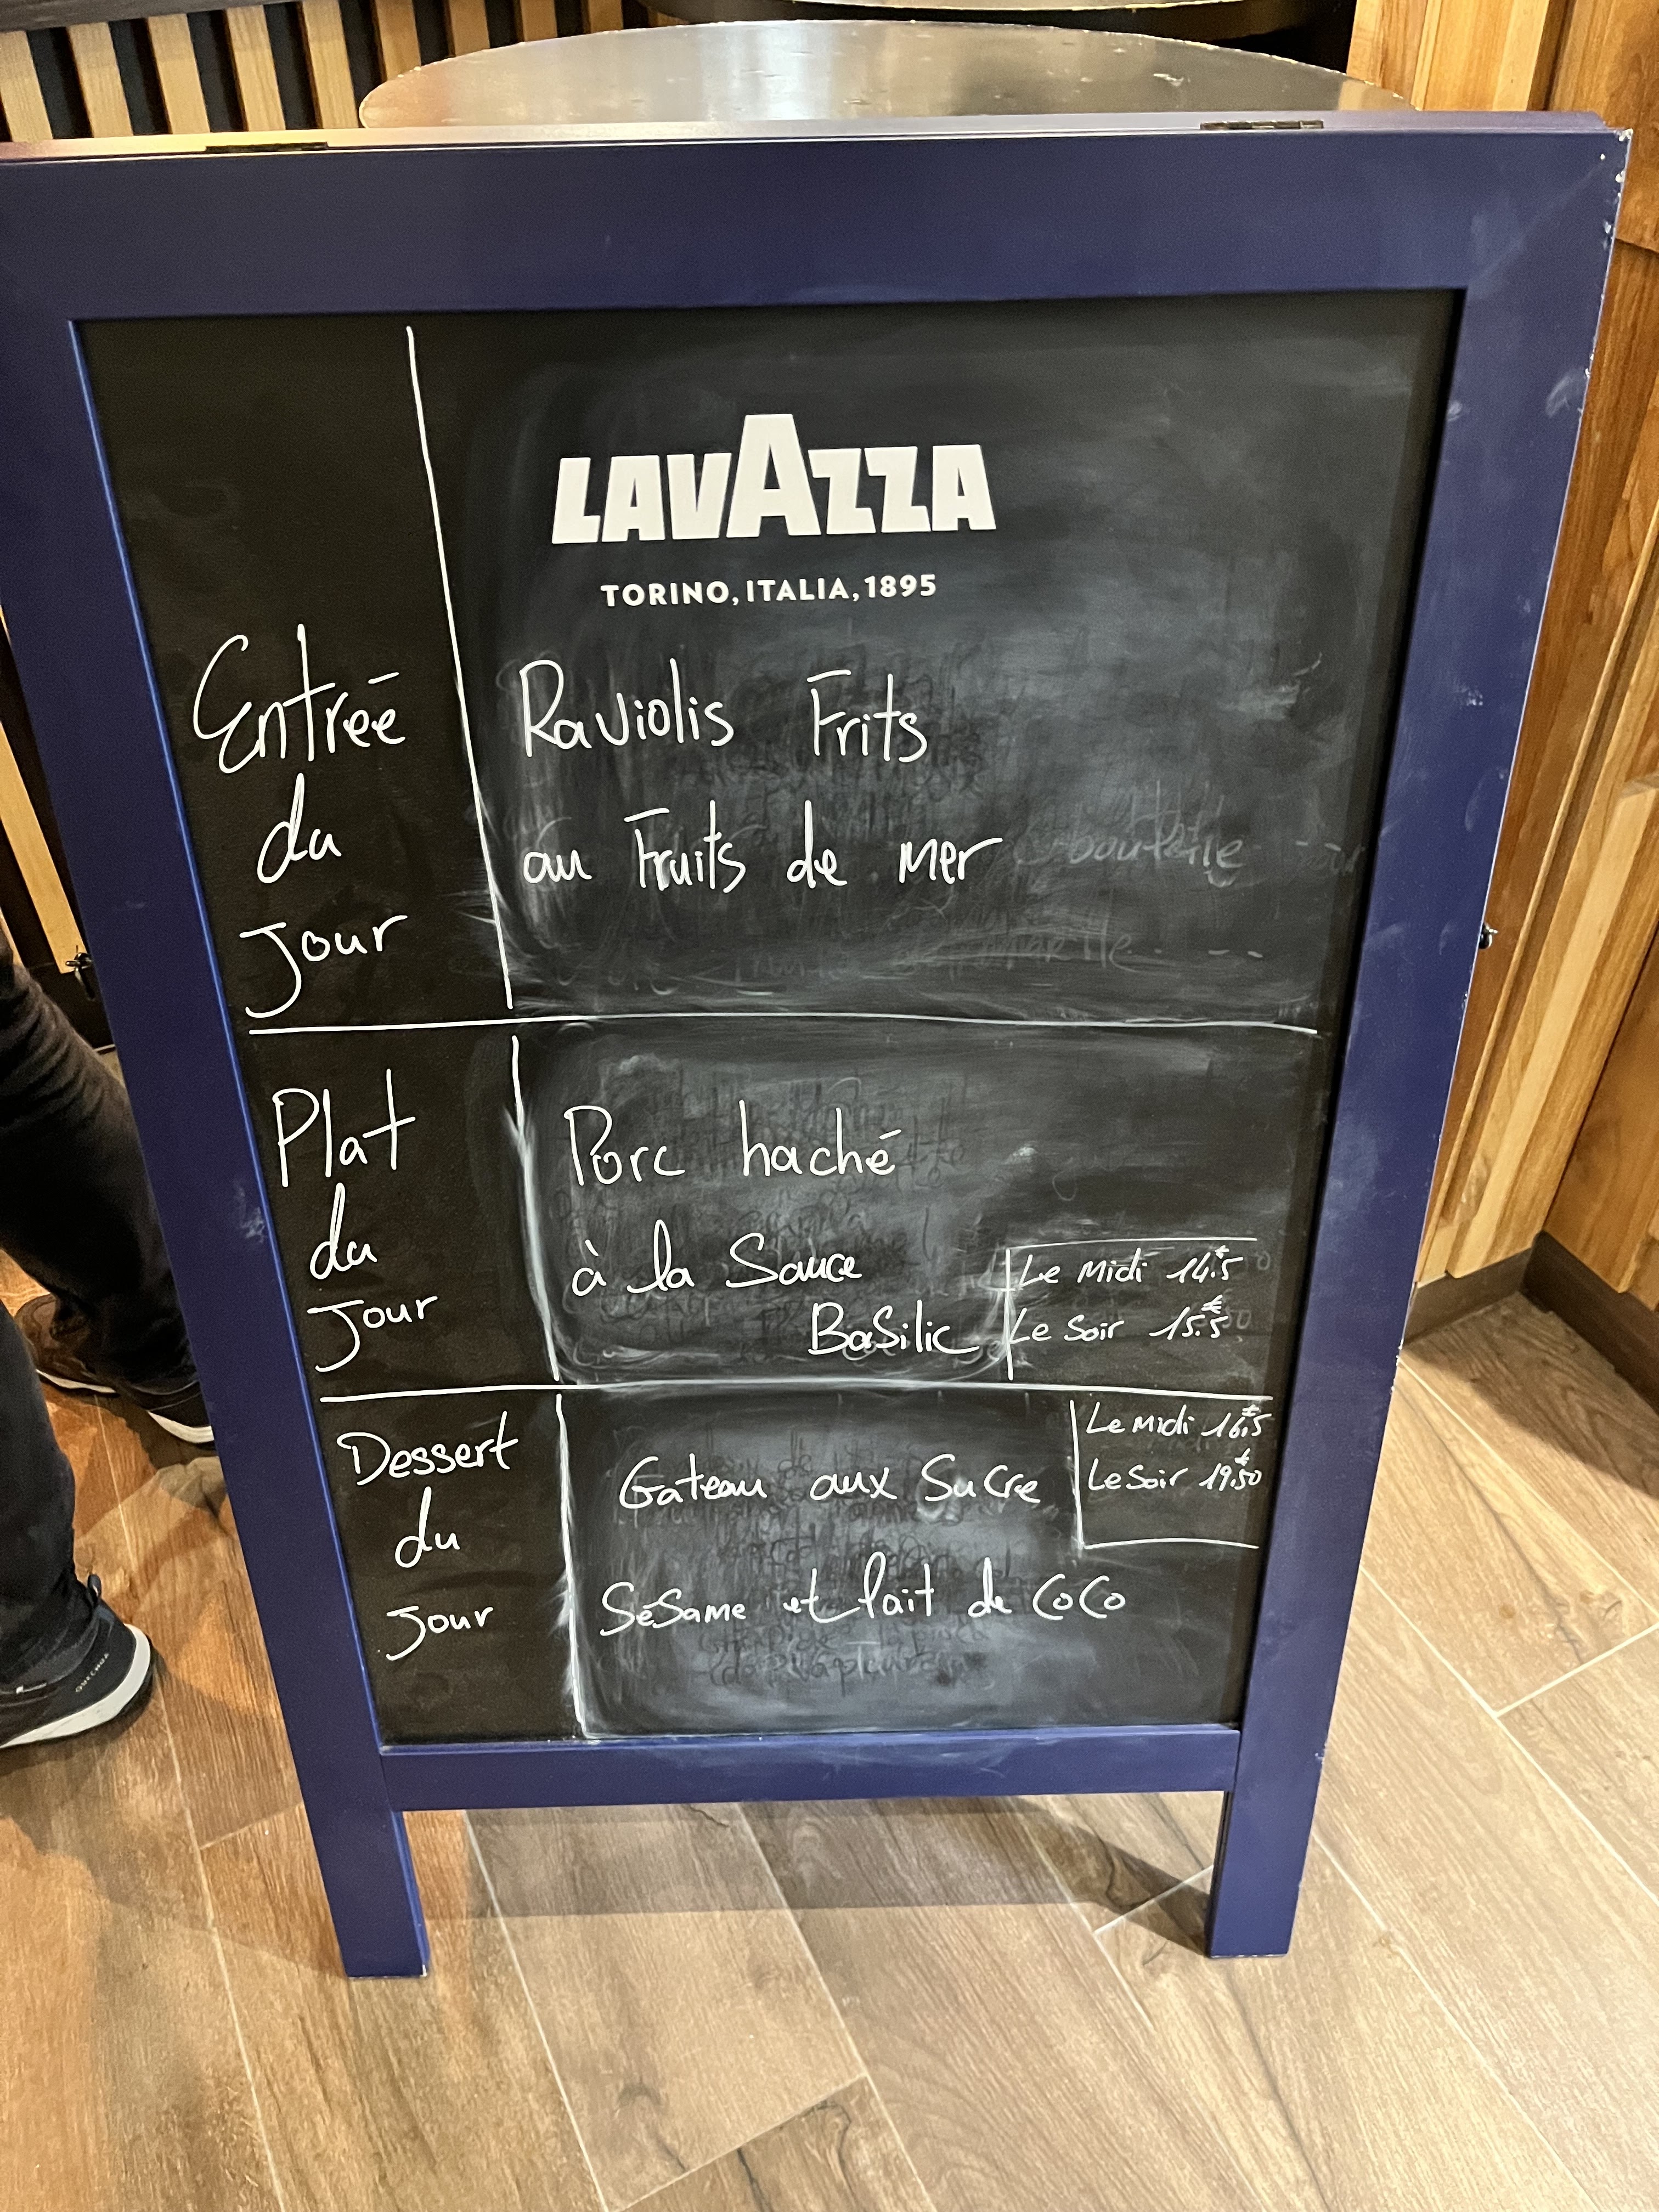 LAVAZZA
TORINO, ITALIA, 1895
Entrée
du
Jour
Raviolis Frits
au Fruits de mer
bouteille
Plat
du
Jour
Porc haché
à la Sauce
Basilic
Le Midi 14.€5
Le Soir 15.€5
Dessert
du
Jour
Gateau aux Sucre
Sésame et lait de CoCo
Le Midi 16.€5
Le Soir 19.€50
QUECHUA